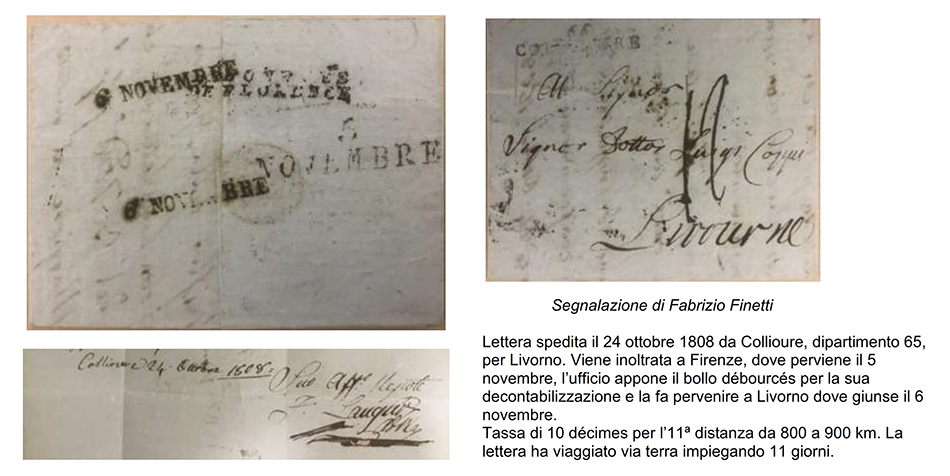 6 NOVEMBRE
DE FLORENCE
NOVEMBRE
6 NOVEMBRE
Collioure 24. 1808.
Sue Aff.
COLLIOURE
Al Signor
Signor Dottor Luigi
Livourne
Segnalazione di Fabrizio Finetti
Lettera spedita il 24 ottobre 1808 da Collioure, dipartimento 65,
per Livorno. Viene inoltrata a Firenze, dove perviene il 5
novembre, l’ufficio appone il bollo débourcés per la sua
decontabilizzazione e la fa pervenire a Livorno dove giunse il 6
novembre.
Tassa di 10 décimes per l’11ª distanza da 800 a 900 km. La
lettera ha viaggiato via terra impiegando 11 giorni.